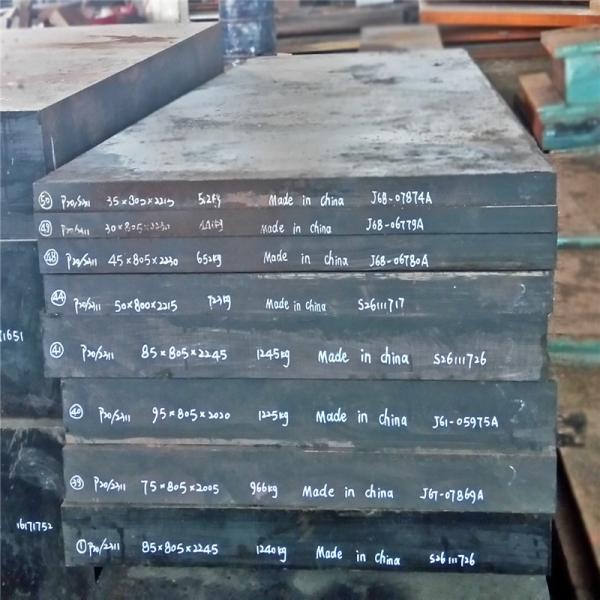 50 P20/S311 35×805×2215 512kg Made in china J68-07874A
49 30×805×2230 Made in china J68-06779A
48 P20/S311 45×805×2230 652kg Made in china J68-06780A
44 P20/S311 50×800×2215 723kg Made in china S26111717
41 P20/S311 85×805×2245 1245kg Made in china S26111726
40 P20/S311 95×805×2020 1225kg Made in china J61-05975A
39 P20/S311 75×805×2005 966kg Made in china J67-07869A
1 P20/2311 85×805×2245 1240kg Made in china S26111726
1651
16171752